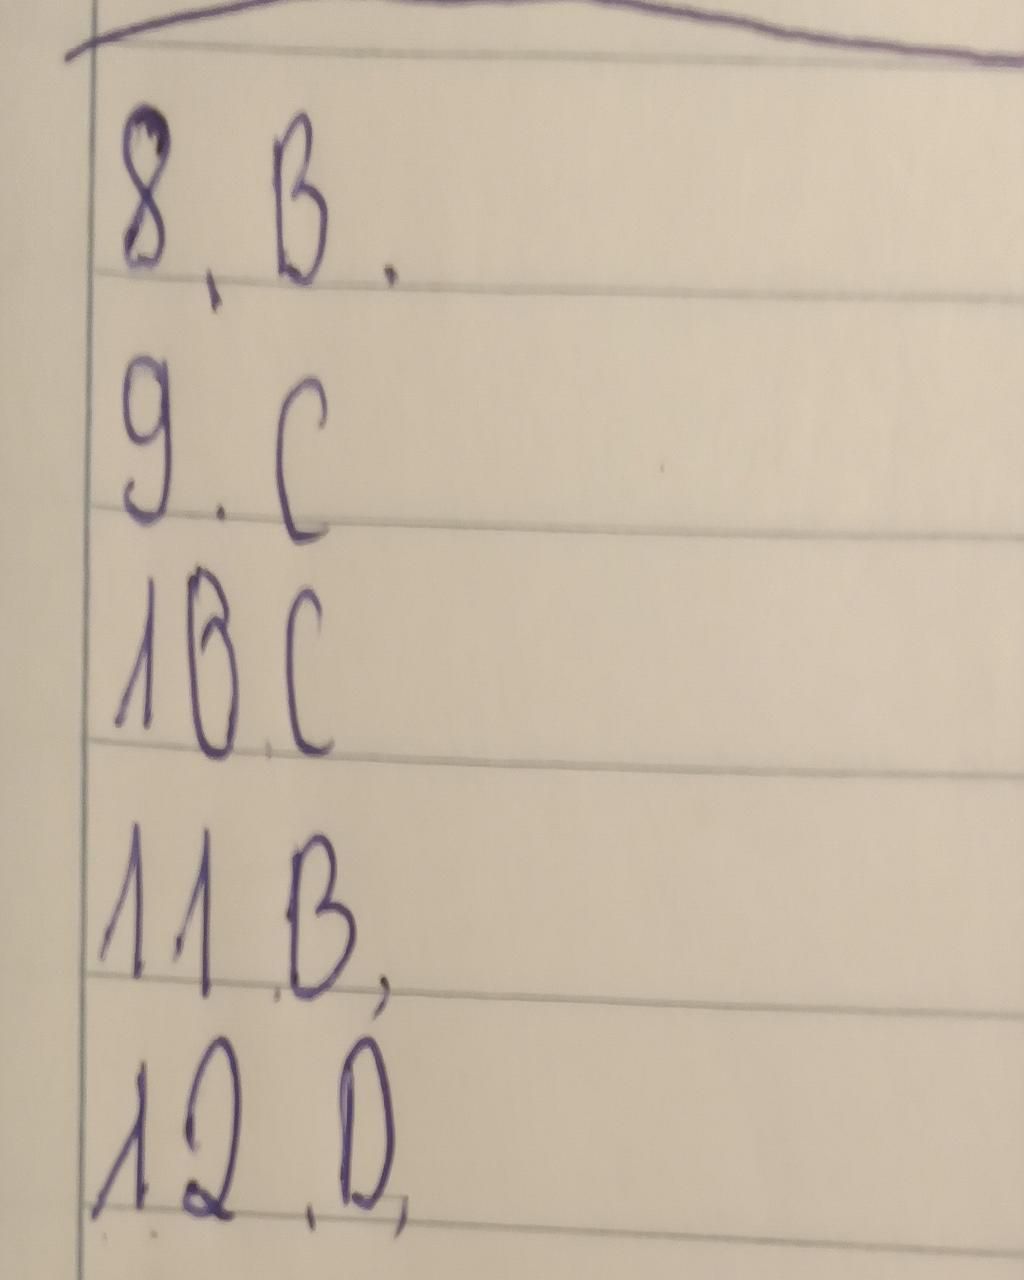 8, B.
9. C
10. C
11. B,
12. D,